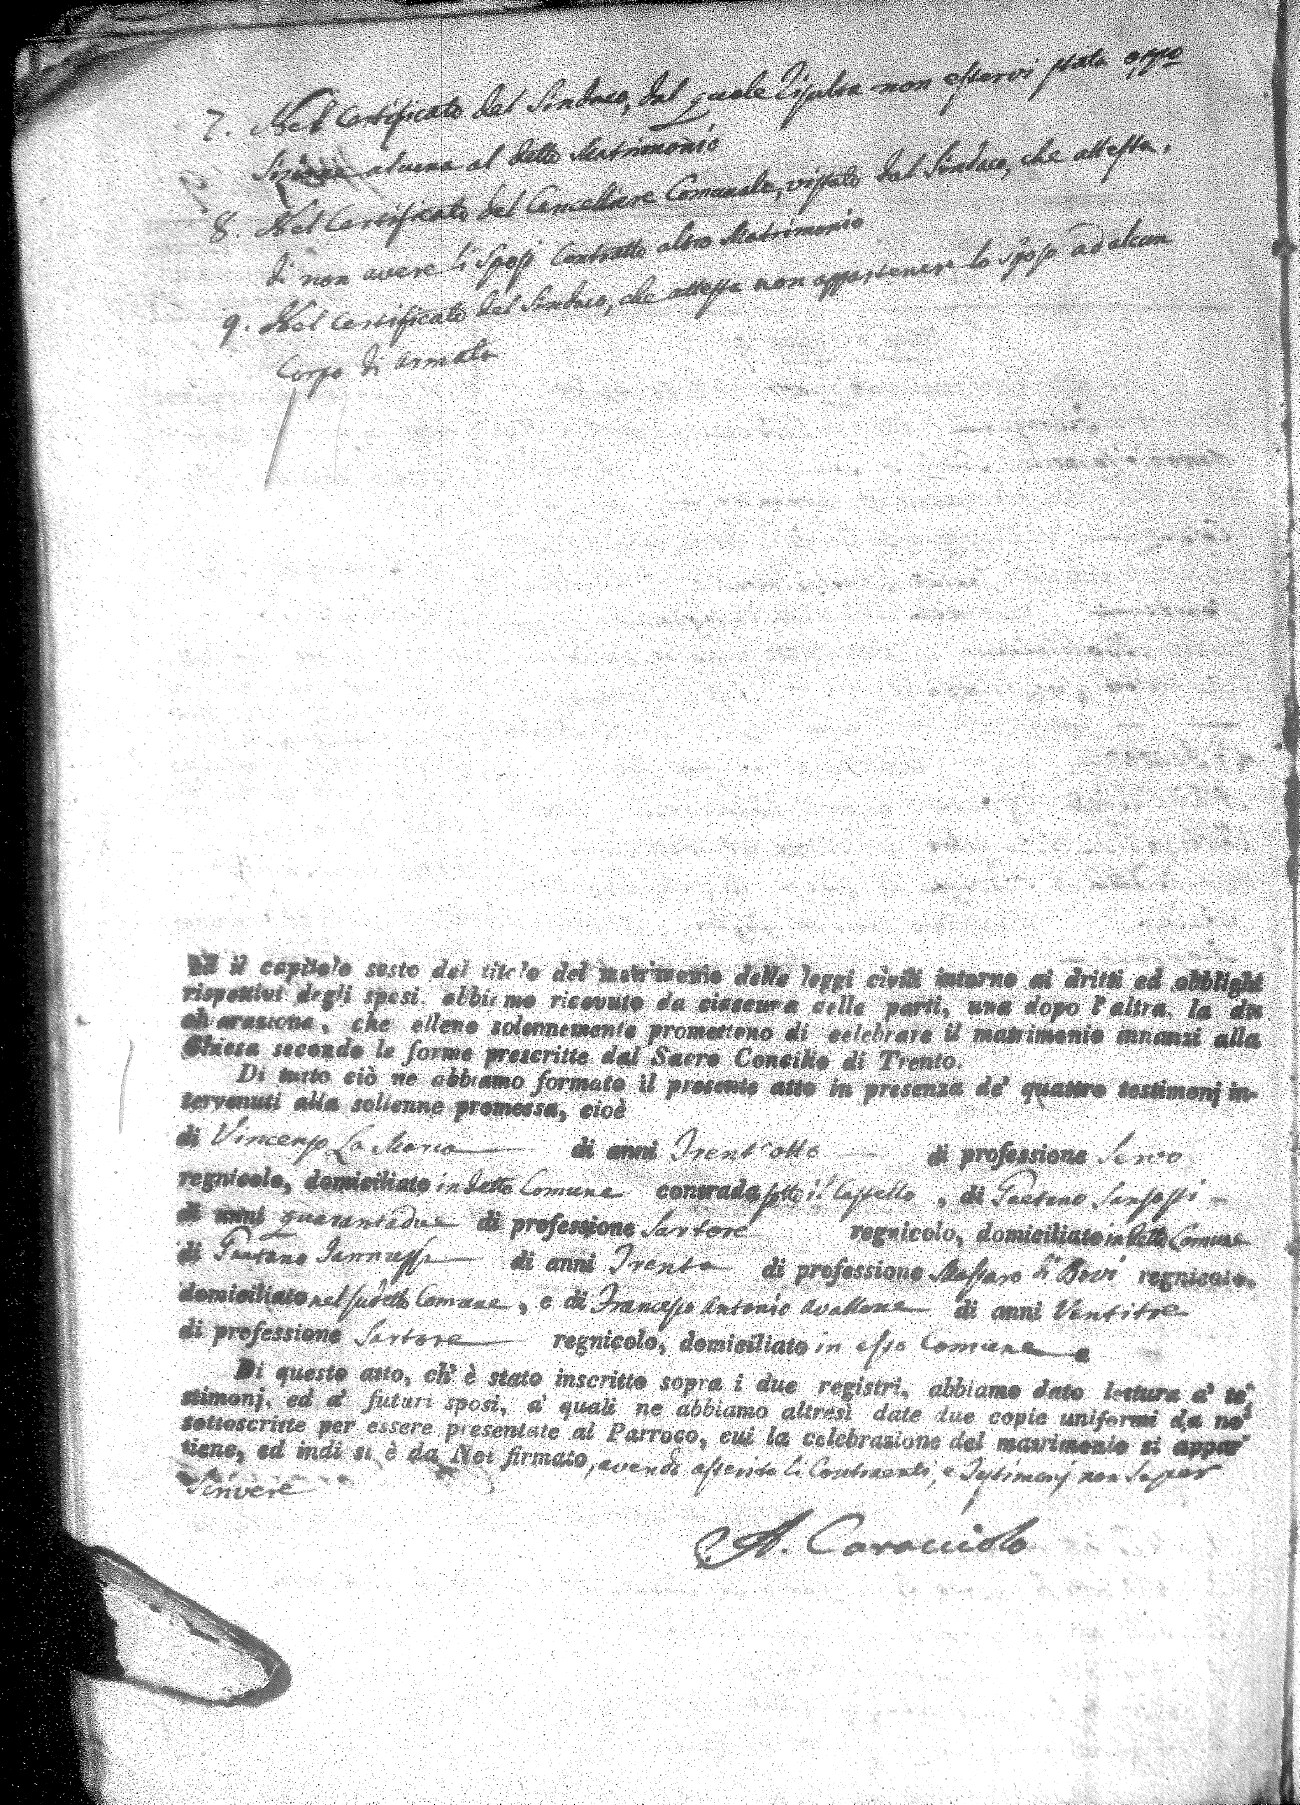 7. Nel Certificato del Sindaco, dal quale risulta non esservi stata oppo
sizione alcuna al detto Matrimonio
8. Nel Certificato del Cancelliere Comunale, vistato dal Sindaco, che attesta,
di non avere li Sposi Contratto altro Matrimonio
9. Nel Certificato del Sindaco, che attesta non appartenere lo sposo ad alcun
Corpo di armata
Ed il capitolo sesto del titolo del matrimonio delle leggi civili intorno ai dritti ed obblighi
rispettivi degli sposi, abbiamo ricevuto da ciascuna delle parti, una dopo l'altra, la di
chiarazione, che elleno solennemente promettono di celebrare il matrimonio innanzi alla
Chiesa secondo le forme prescritte dal Sacro Concilio di Trento.
Di tutto ciò ne abbiamo formato il presente atto in presenza de' quattro testimonj in-
tervenuti alla solienne promessa, cioè
di Vincenzo La Marca di anni Trent'otto di professione Servo
regnicolo, domiciliato in detto Comune contrada sotto il Castello, di Gaetano
di anni quarantadue di professione Sartore regnicolo, domiciliato in detto Comune
di Gaetano di anni Trenta di professione Massaro di Bovi regnicolo,
domiciliato nel sudetto Comune, e di Francesco Antonio Avallone di anni Ventitre
di professione Sartore regnicolo, domiciliato in esso Comune
Di questo atto, ch' è stato inscritto sopra i due registri, abbiamo dato lettura a' te
stimonj, ed a' futuri sposi, a' quali ne abbiamo altresì date due copie uniformi da noi
sottoscritte per essere presentate al Parroco, cui la celebrazione del matrimonio si appar
tiene, ed indi si è da Noi firmato, avendo asserito li Contraenti, e Testimonj non saper
scrivere
A. Caracciolo